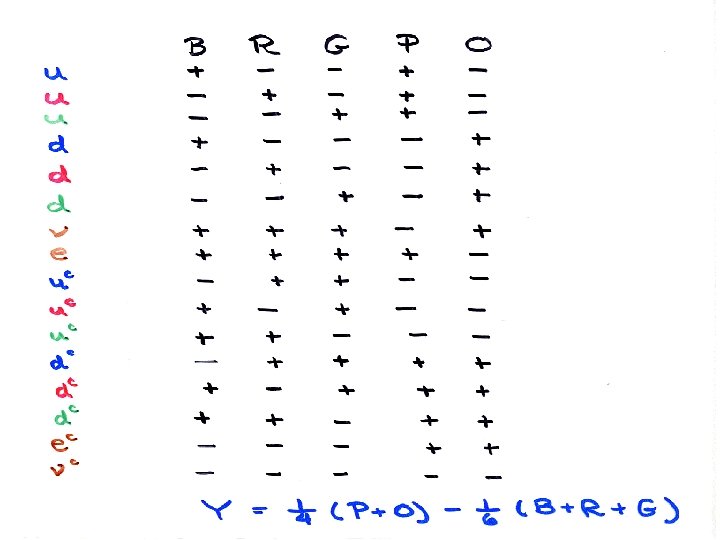 B R G P O
u + − − + −
u − + − + −
u − − + + −
d + − − − +
d − + − − +
d − − + − +
ν + + + − +
e + + + + −
uᶜ − + + − −
uᶜ + − + − −
uᶜ + + − − −
dᶜ − + + + +
dᶜ + − + + +
dᶜ + + − + +
eᶜ − − − + +
νᶜ − − − − −
Y = 1/4 (P+O) − 1/6 (B+R+G)